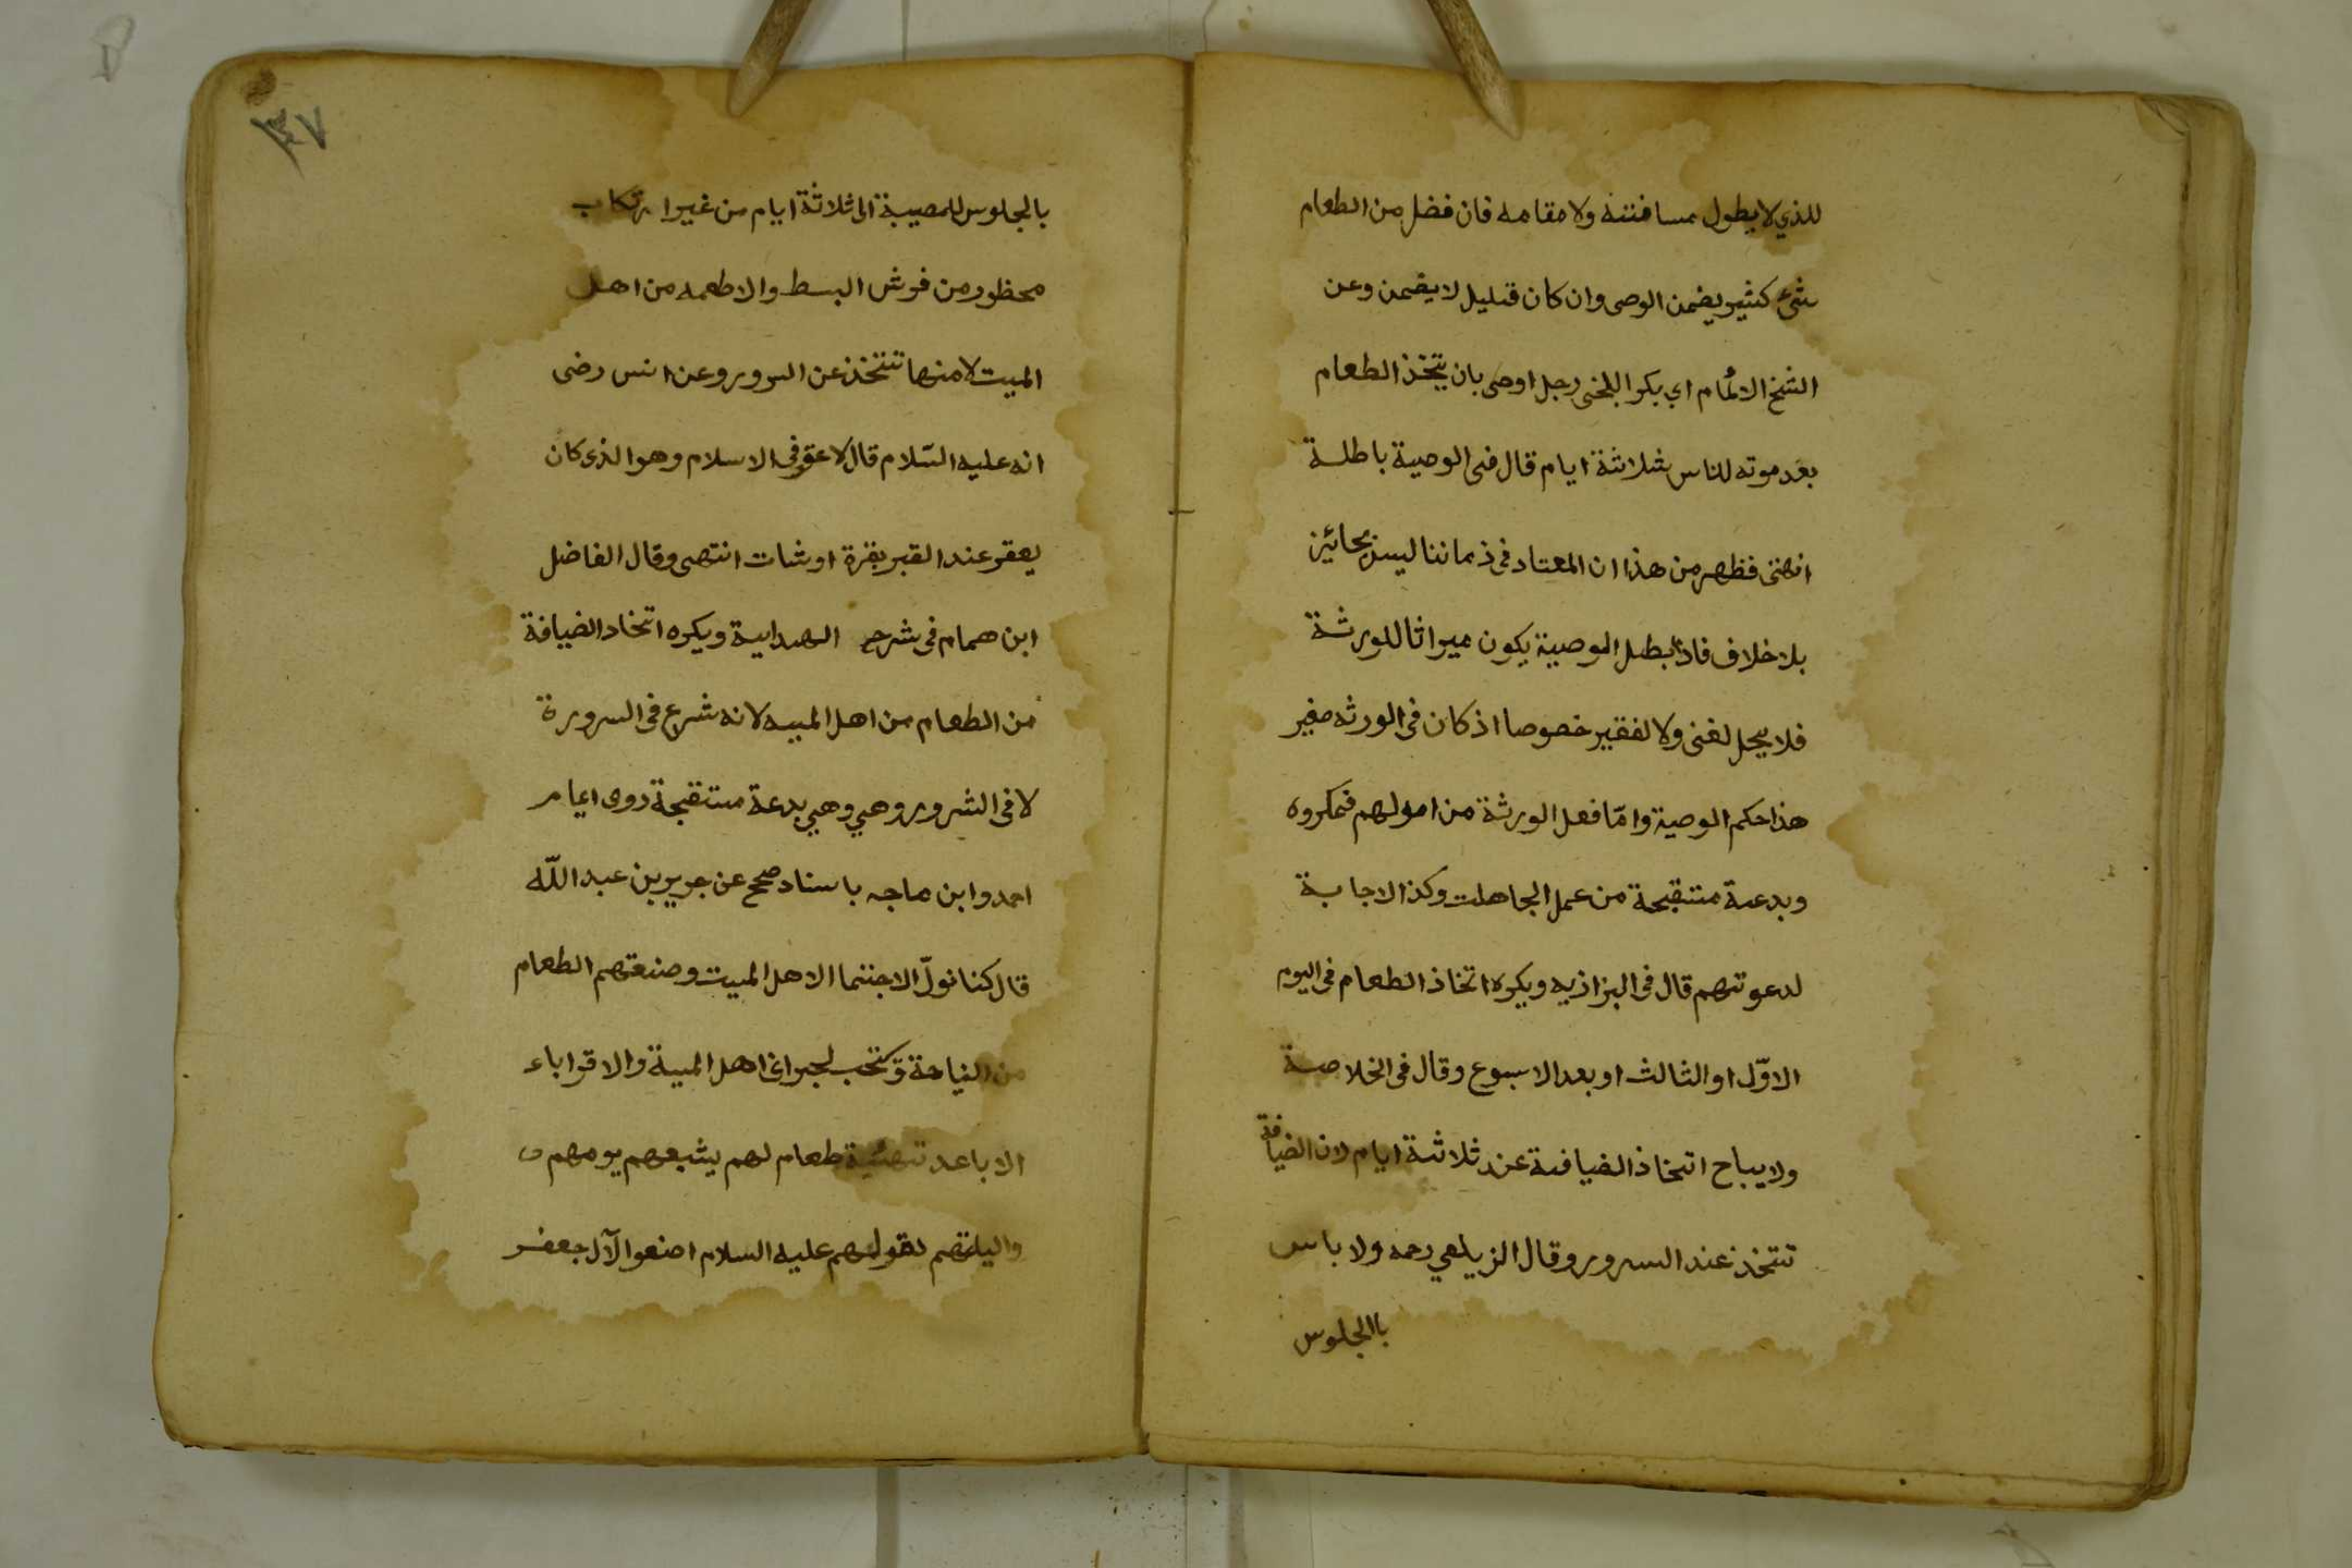 للذي لا يطول مسافتنه ولا مقامه فان فضل من الطعام
شئ كثير يضمن الوصى وان كان قليل لا يضمن وعن
الشخ الامام ابي بكر البلخى رجل اوصى بان يتخذ الطعام
بعد موته للناس بثلاثة ايام قال فى الوصية باطلة
انهتى فظهر من هذا ان المعتاد فى ذماننا ليس بجائيز
بلا خلاف فاذا بطل الوصية يكون ميراثا للورثة
فلا يحل لغنى ولا لفقير خصوصا اذ كان فى الورثه صغير
هذا حكم الوصية وامّا فعل الورثة من امولهم فمكروه
وبدعة متنقبحة من عمل الجاهلت وكذا الاجابة
لدعوتهم قال فى البزاذيه ويكره اتخاذ الطعام فى اليوم
الاوّل او الثالث او بعد الاسبوع وقال فى الخلاصة
ولا يباح اتخاذ الضيافة عند ثلاثة ايام لان الضيافة
تتخذ عند السرور وقال الزيلعي رحمه ولا باس
باالجلوس
١٣٧
بالجلوس للمصيبة الى ثلاثة ايام من غير ارتكاب
محظور من فرش البسط والاطعمه من اهل
الميت لا منها تتخذ عن السرور وعن انس رضى
انه عليه السّلام قال لا عقر فى الاسلام وهو الذى كان
يعقر عند القبر بقرة او شات انتهى وقال الفاضل
ابن همام فى شرح الهداية ويكره اتخاد الضيافة
من الطعام من اهل الميه لانه شرع فى السرورة
لا فى الشرور وهي وهي بدعة متنقبجة روى ايمام
احمد وابن ماجه باسناد صحح عن جرير بن عبد اللّه
قال كنا نولّ الاجتنما الاهل الميت وصنعتهم الطعام
من النياحة وتتحب لجيراى اهل المية والاقراباء
الاباعد تهئية طعام لهم يشبعهم يومهم و
واليلتهم لقولهم عليه السلام اصنعوا لآل جعفر